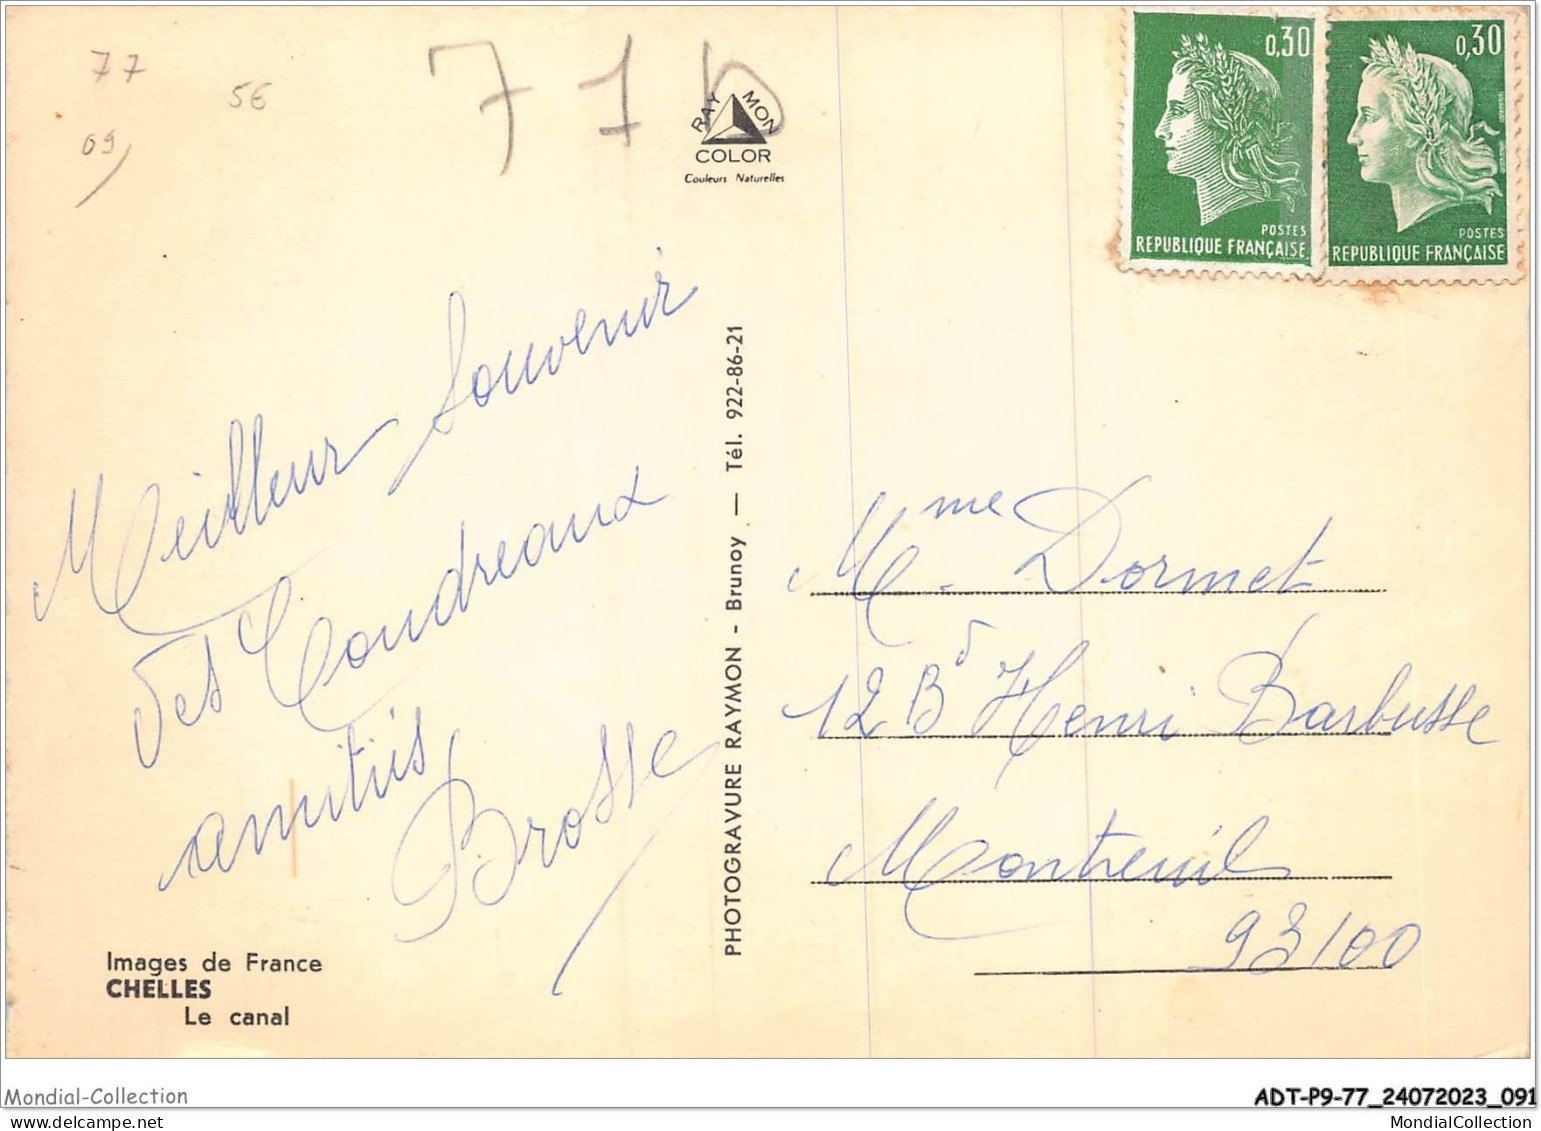 77
5€
69
77b
RAYMON
COLOR
Couleurs Naturelles
0,30
POSTES
REPUBLIQUE FRANÇAISE
0,30
POSTES
REPUBLIQUE FRANÇAISE
Meilleur Souvenir
des Coudreaux
amitiés
Brosse
PHOTOGRAVURE RAYMON - Brunoy — Tél. 922-86-21
Mme Dormet
12 Bd Henri Barbusse
Montreuil
93100
Images de France
CHELLES
Le canal
Mondial-Collection
ADT-P9-77_24072023_091
www.delcampe.net
MondialCollection